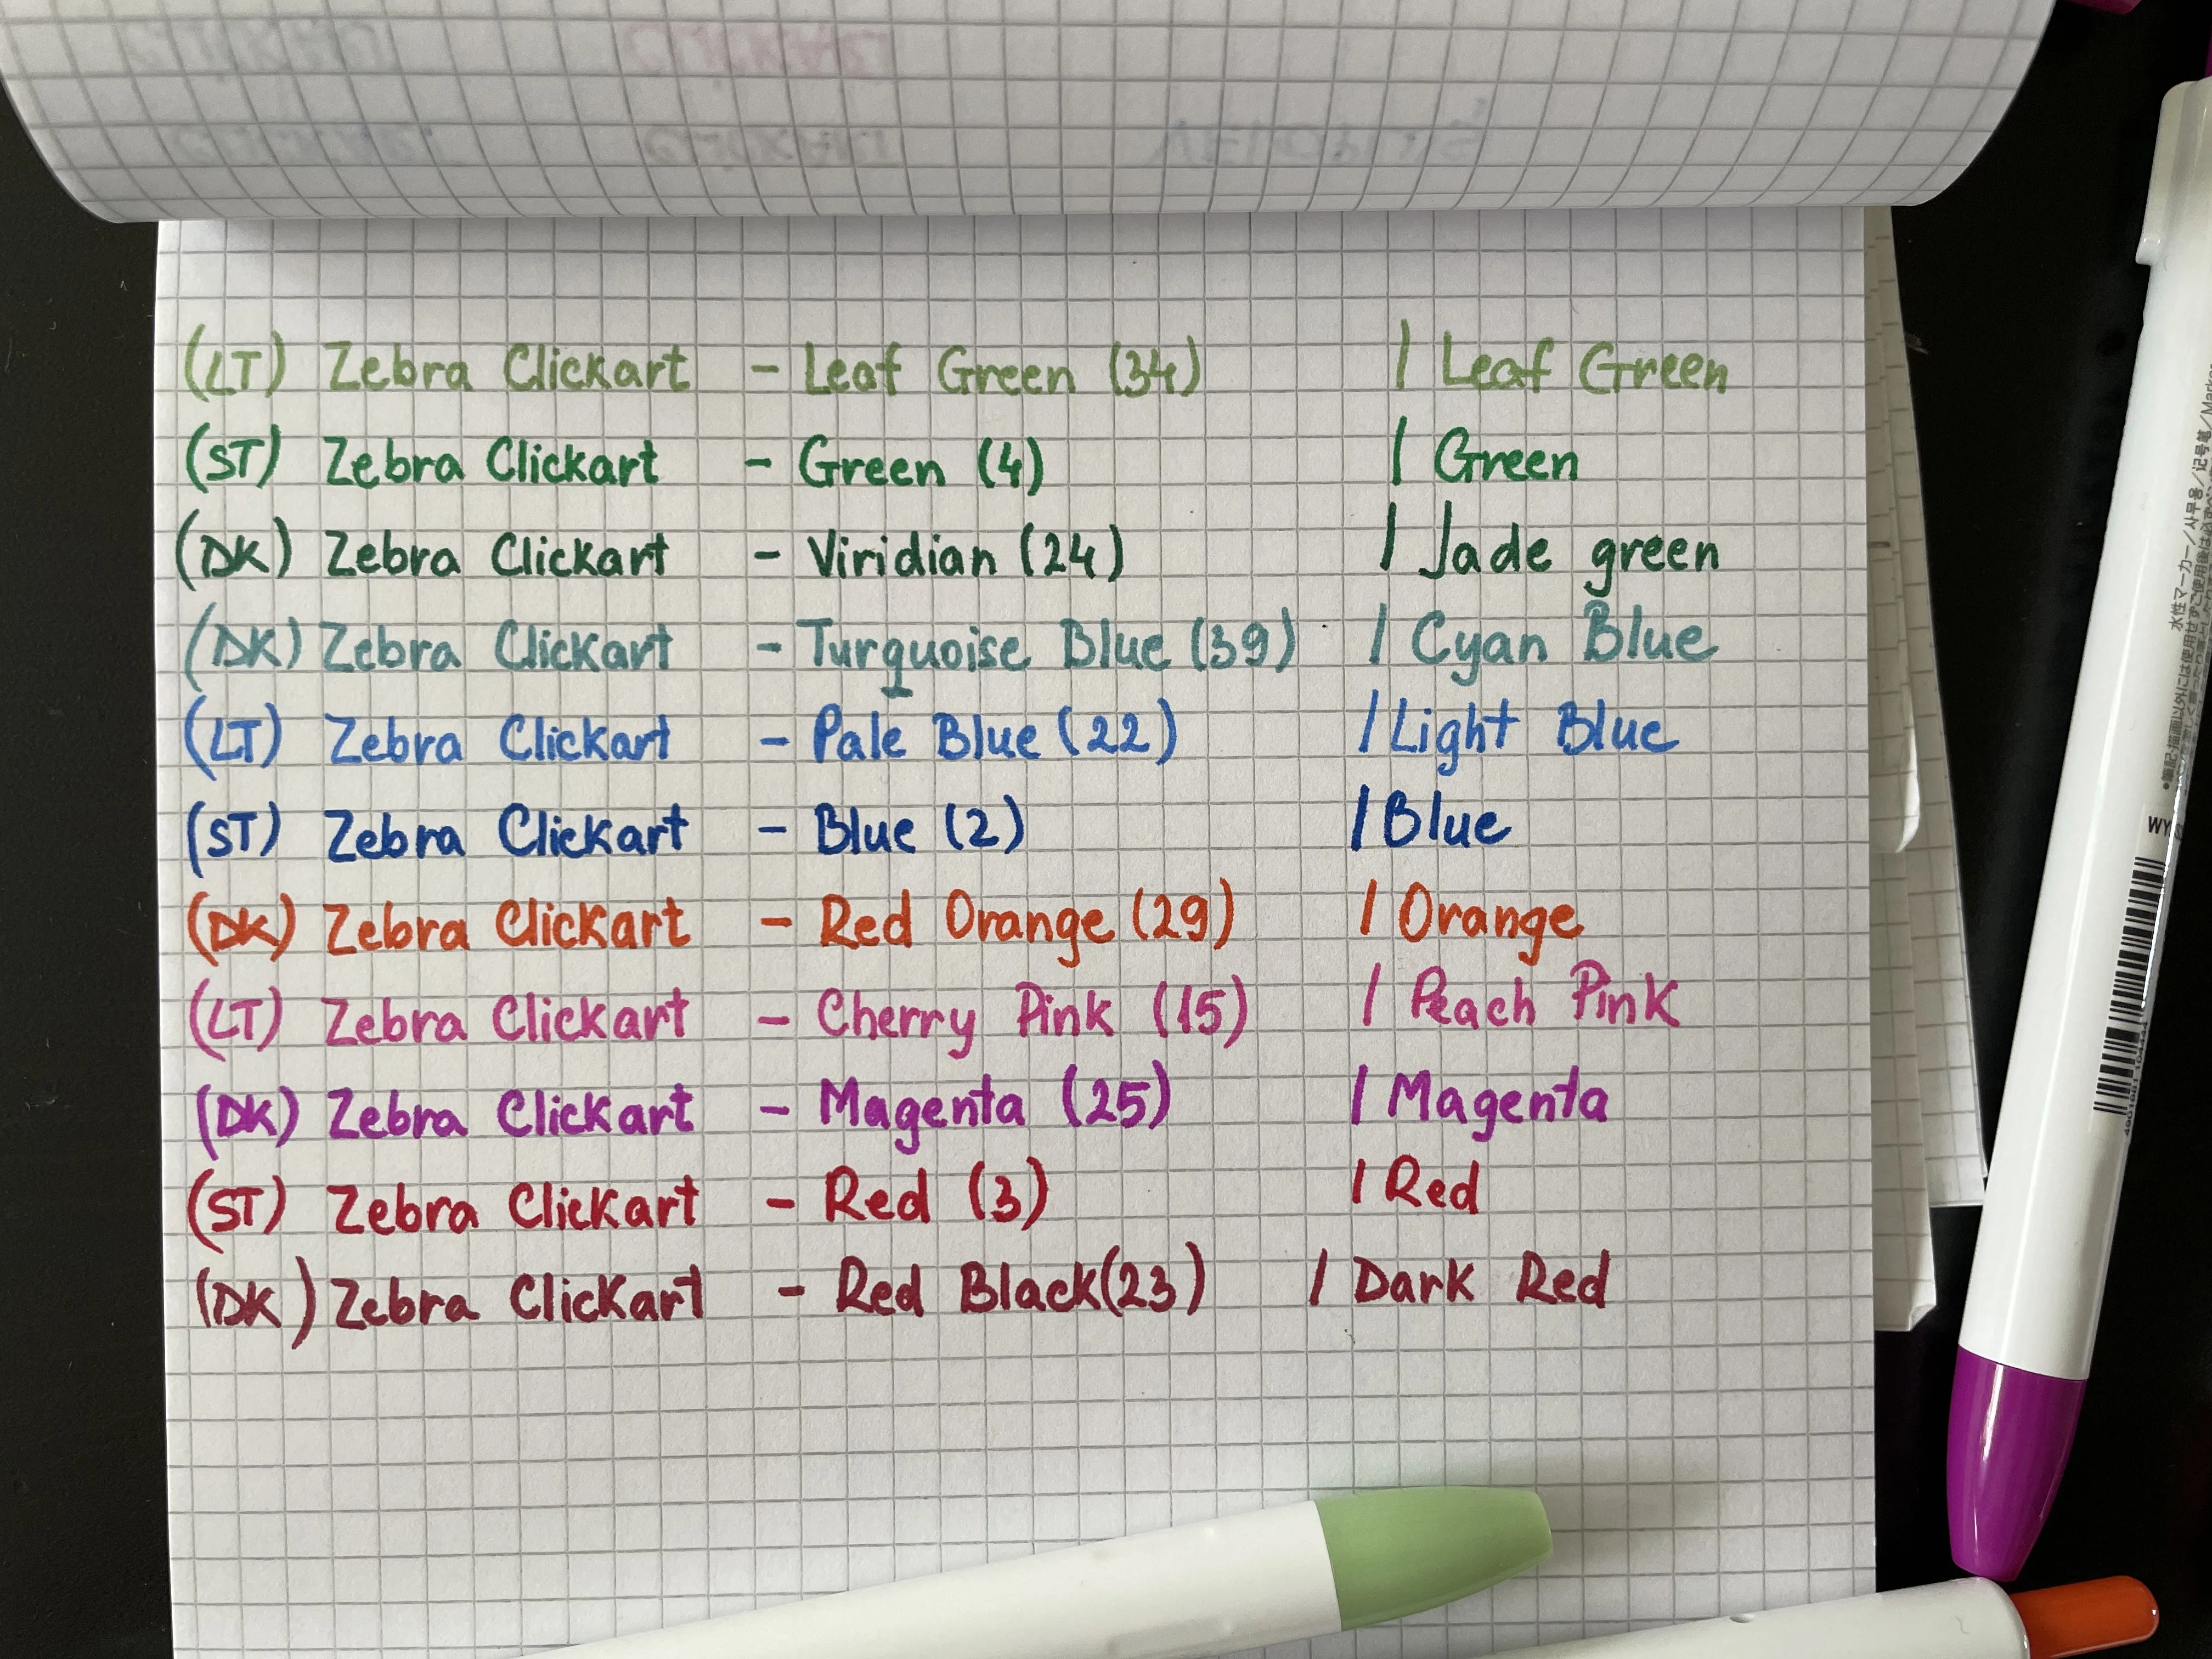 (LT) Zebra Clickart - Leaf Green (34) | Leaf Green
(ST) Zebra Clickart - Green (4) | Green
(DK) Zebra Clickart - Viridian (24) | Jade green
(DK) Zebra Clickart - Turquoise Blue (39) | Cyan Blue
(LT) Zebra Clickart - Pale Blue (22) | Light Blue
(ST) Zebra Clickart - Blue (2) | Blue
(DK) Zebra Clickart - Red Orange (29) | Orange
(LT) Zebra Clickart - Cherry Pink (15) | Peach Pink
(DK) Zebra Clickart - Magenta (25) | Magenta
(ST) Zebra Clickart - Red (3) | Red
(DK) Zebra Clickart - Red Black (23) | Dark Red
水性マーカー/사무용/记号笔/Marker
WY